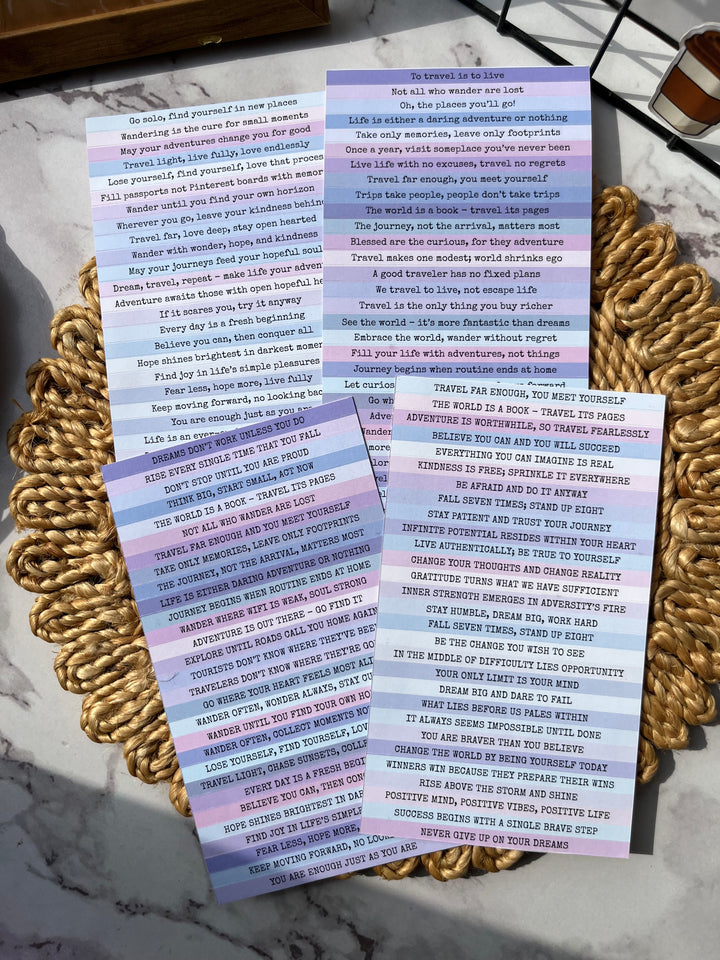 Go solo, find yourself in new places
Wandering is the cure for small moments
May your adventures change you for good
Travel light, live fully, love endlessly
Lose yourself, find yourself, love that proces
Fill passports not Pinterest boards with memor
Wander until you find your own horizon
Wherever you go, leave your kindness behin
Travel far, love deep, stay open hearted
Wander with wonder, hope, and kindness
May your journeys feed your hopeful soul
Dream, travel, repeat - make life your adven
Adventure awaits those with open hopeful he
If it scares you, try it anyway
Every day is a fresh beginning
Believe you can, then conquer all
Hope shines brightest in darkest momen
Find joy in life's simple pleasures
Fear less, hope more, live fully
Keep moving forward, no looking bac
You are enough just as you are
Life is an
To travel is to live
Not all who wander are lost
Oh, the places you'll go!
Life is either a daring adventure or nothing
Take only memories, leave only footprints
Once a year, visit someplace you've never been
Live life with no excuses, travel no regrets
Travel far enough, you meet yourself
Trips take people, people don't take trips
The world is a book - travel its pages
The journey, not the arrival, matters most
Blessed are the curious, for they adventure
Travel makes one modest; world shrinks ego
A good traveler has no fixed plans
We travel to live, not escape life
Travel is the only thing you buy richer
See the world - it's more fantastic than dreams
Embrace the world, wander without regret
Fill your life with adventures, not things
Journey begins when routine ends at home
Let curios
Go wh
Adve
Wander
more,
DREAMS DON'T WORK UNLESS YOU DO
RISE EVERY SINGLE TIME THAT YOU FALL
DON'T STOP UNTIL YOU ARE PROUD
THINK BIG, START SMALL, ACT NOW
THE WORLD IS A BOOK - TRAVEL ITS PAGES
NOT ALL WHO WANDER ARE LOST
TRAVEL FAR ENOUGH AND YOU MEET YOURSELF
TAKE ONLY MEMORIES, LEAVE ONLY FOOTPRINTS
THE JOURNEY, NOT THE ARRIVAL, MATTERS MOST
LIFE IS EITHER DARING ADVENTURE OR NOTHING
JOURNEY BEGINS WHEN ROUTINE ENDS AT HOME
WANDER WHERE WIFI IS WEAK, SOUL STRONG
ADVENTURE IS OUT THERE - GO FIND IT
EXPLORE UNTIL ROADS CALL YOU HOME AGAIN
TOURISTS DON'T KNOW WHERE THEY'VE BEE
TRAVELERS DON'T KNOW WHERE THEY'RE GO
GO WHERE YOUR HEART FEELS MOST ALI
WANDER OFTEN, WONDER ALWAYS, STAY CU
WANDER UNTIL YOU FIND YOUR OWN HO
WANDER OFTEN, COLLECT MOMENTS NO
LOSE YOURSELF, FIND YOURSELF, LOV
TRAVEL LIGHT, CHASE SUNSETS, COLLE
EVERY DAY IS A FRESH BEGI
BELIEVE YOU CAN, THEN CON
HOPE SHINES BRIGHTEST IN DAR
FIND JOY IN LIFE'S SIMPLE
FEAR LESS, HOPE MORE,
KEEP MOVING FORWARD, NO LOOK
YOU ARE ENOUGH JUST AS YOU ARE
TRAVEL FAR ENOUGH, YOU MEET YOURSELF
THE WORLD IS A BOOK - TRAVEL ITS PAGES
ADVENTURE IS WORTHWHILE, SO TRAVEL FEARLESSLY
BELIEVE YOU CAN AND YOU WILL SUCCEED
EVERYTHING YOU CAN IMAGINE IS REAL
KINDNESS IS FREE; SPRINKLE IT EVERYWHERE
BE AFRAID AND DO IT ANYWAY
FALL SEVEN TIMES; STAND UP EIGHT
STAY PATIENT AND TRUST YOUR JOURNEY
INFINITE POTENTIAL RESIDES WITHIN YOUR HEART
LIVE AUTHENTICALLY; BE TRUE TO YOURSELF
CHANGE YOUR THOUGHTS AND CHANGE REALITY
GRATITUDE TURNS WHAT WE HAVE SUFFICIENT
INNER STRENGTH EMERGES IN ADVERSITY'S FIRE
STAY HUMBLE, DREAM BIG, WORK HARD
FALL SEVEN TIMES, STAND UP EIGHT
BE THE CHANGE YOU WISH TO SEE
IN THE MIDDLE OF DIFFICULTY LIES OPPORTUNITY
YOUR ONLY LIMIT IS YOUR MIND
DREAM BIG AND DARE TO FAIL
WHAT LIES BEFORE US PALES WITHIN
IT ALWAYS SEEMS IMPOSSIBLE UNTIL DONE
YOU ARE BRAVER THAN YOU BELIEVE
CHANGE THE WORLD BY BEING YOURSELF TODAY
WINNERS WIN BECAUSE THEY PREPARE THEIR WINS
RISE ABOVE THE STORM AND SHINE
POSITIVE MIND, POSITIVE VIBES, POSITIVE LIFE
SUCCESS BEGINS WITH A SINGLE BRAVE STEP
NEVER GIVE UP ON YOUR DREAMS